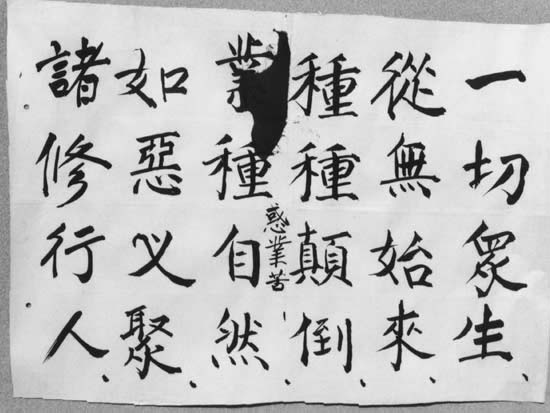 一切眾生、
從無始來、
種種顛倒、
惑業苦
業種自然、
如惡叉聚、
諸修行人、